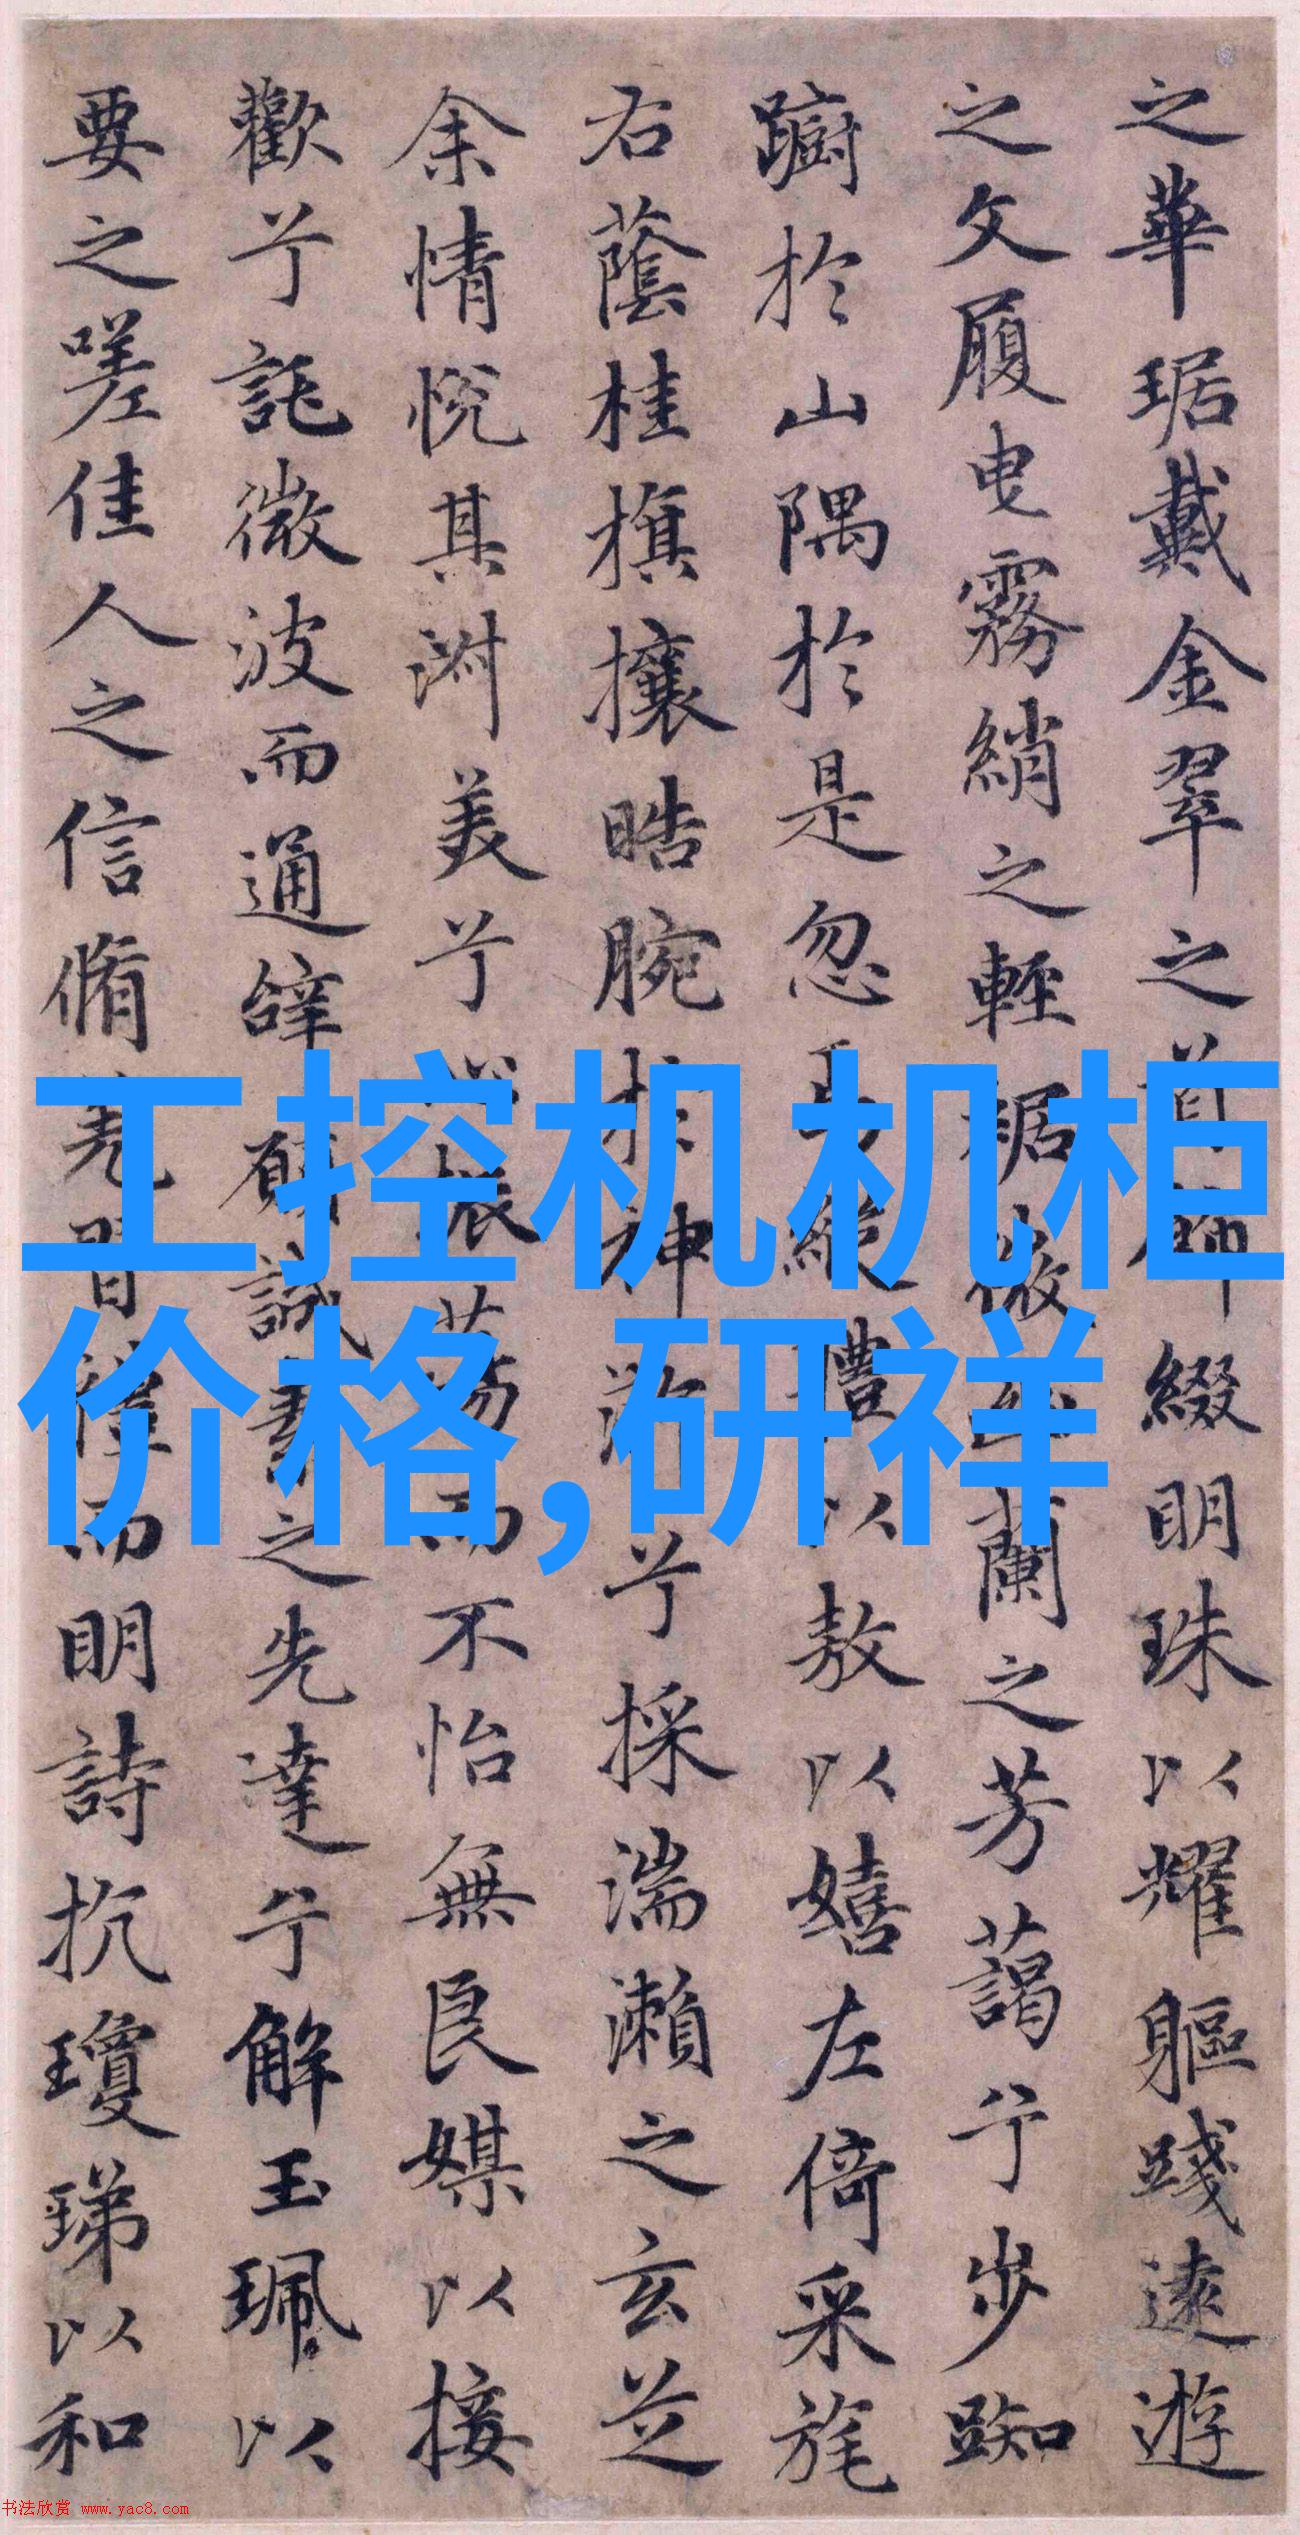 之華琚戴金翠之首飾綴明珠以耀軀踐遠遊
之文履曳霧綃之輕裾微幽蘭之芳藹兮步踟
躕於山隅於是忽焉縱體以敖以嬉左倚采旄
右蔭桂旗攘晧腕於神滸兮採湍瀨之玄芝
余情悅其淑美兮心振蕩而不怡無良媒以接
歡兮託微波而通辭願誠素之先達兮解玉珮以
要之嗟佳人之信脩羌習禮而明詩抗瓊珶以和
工控机机柜
价格,研祥
书法欣赏 www.yac8.com